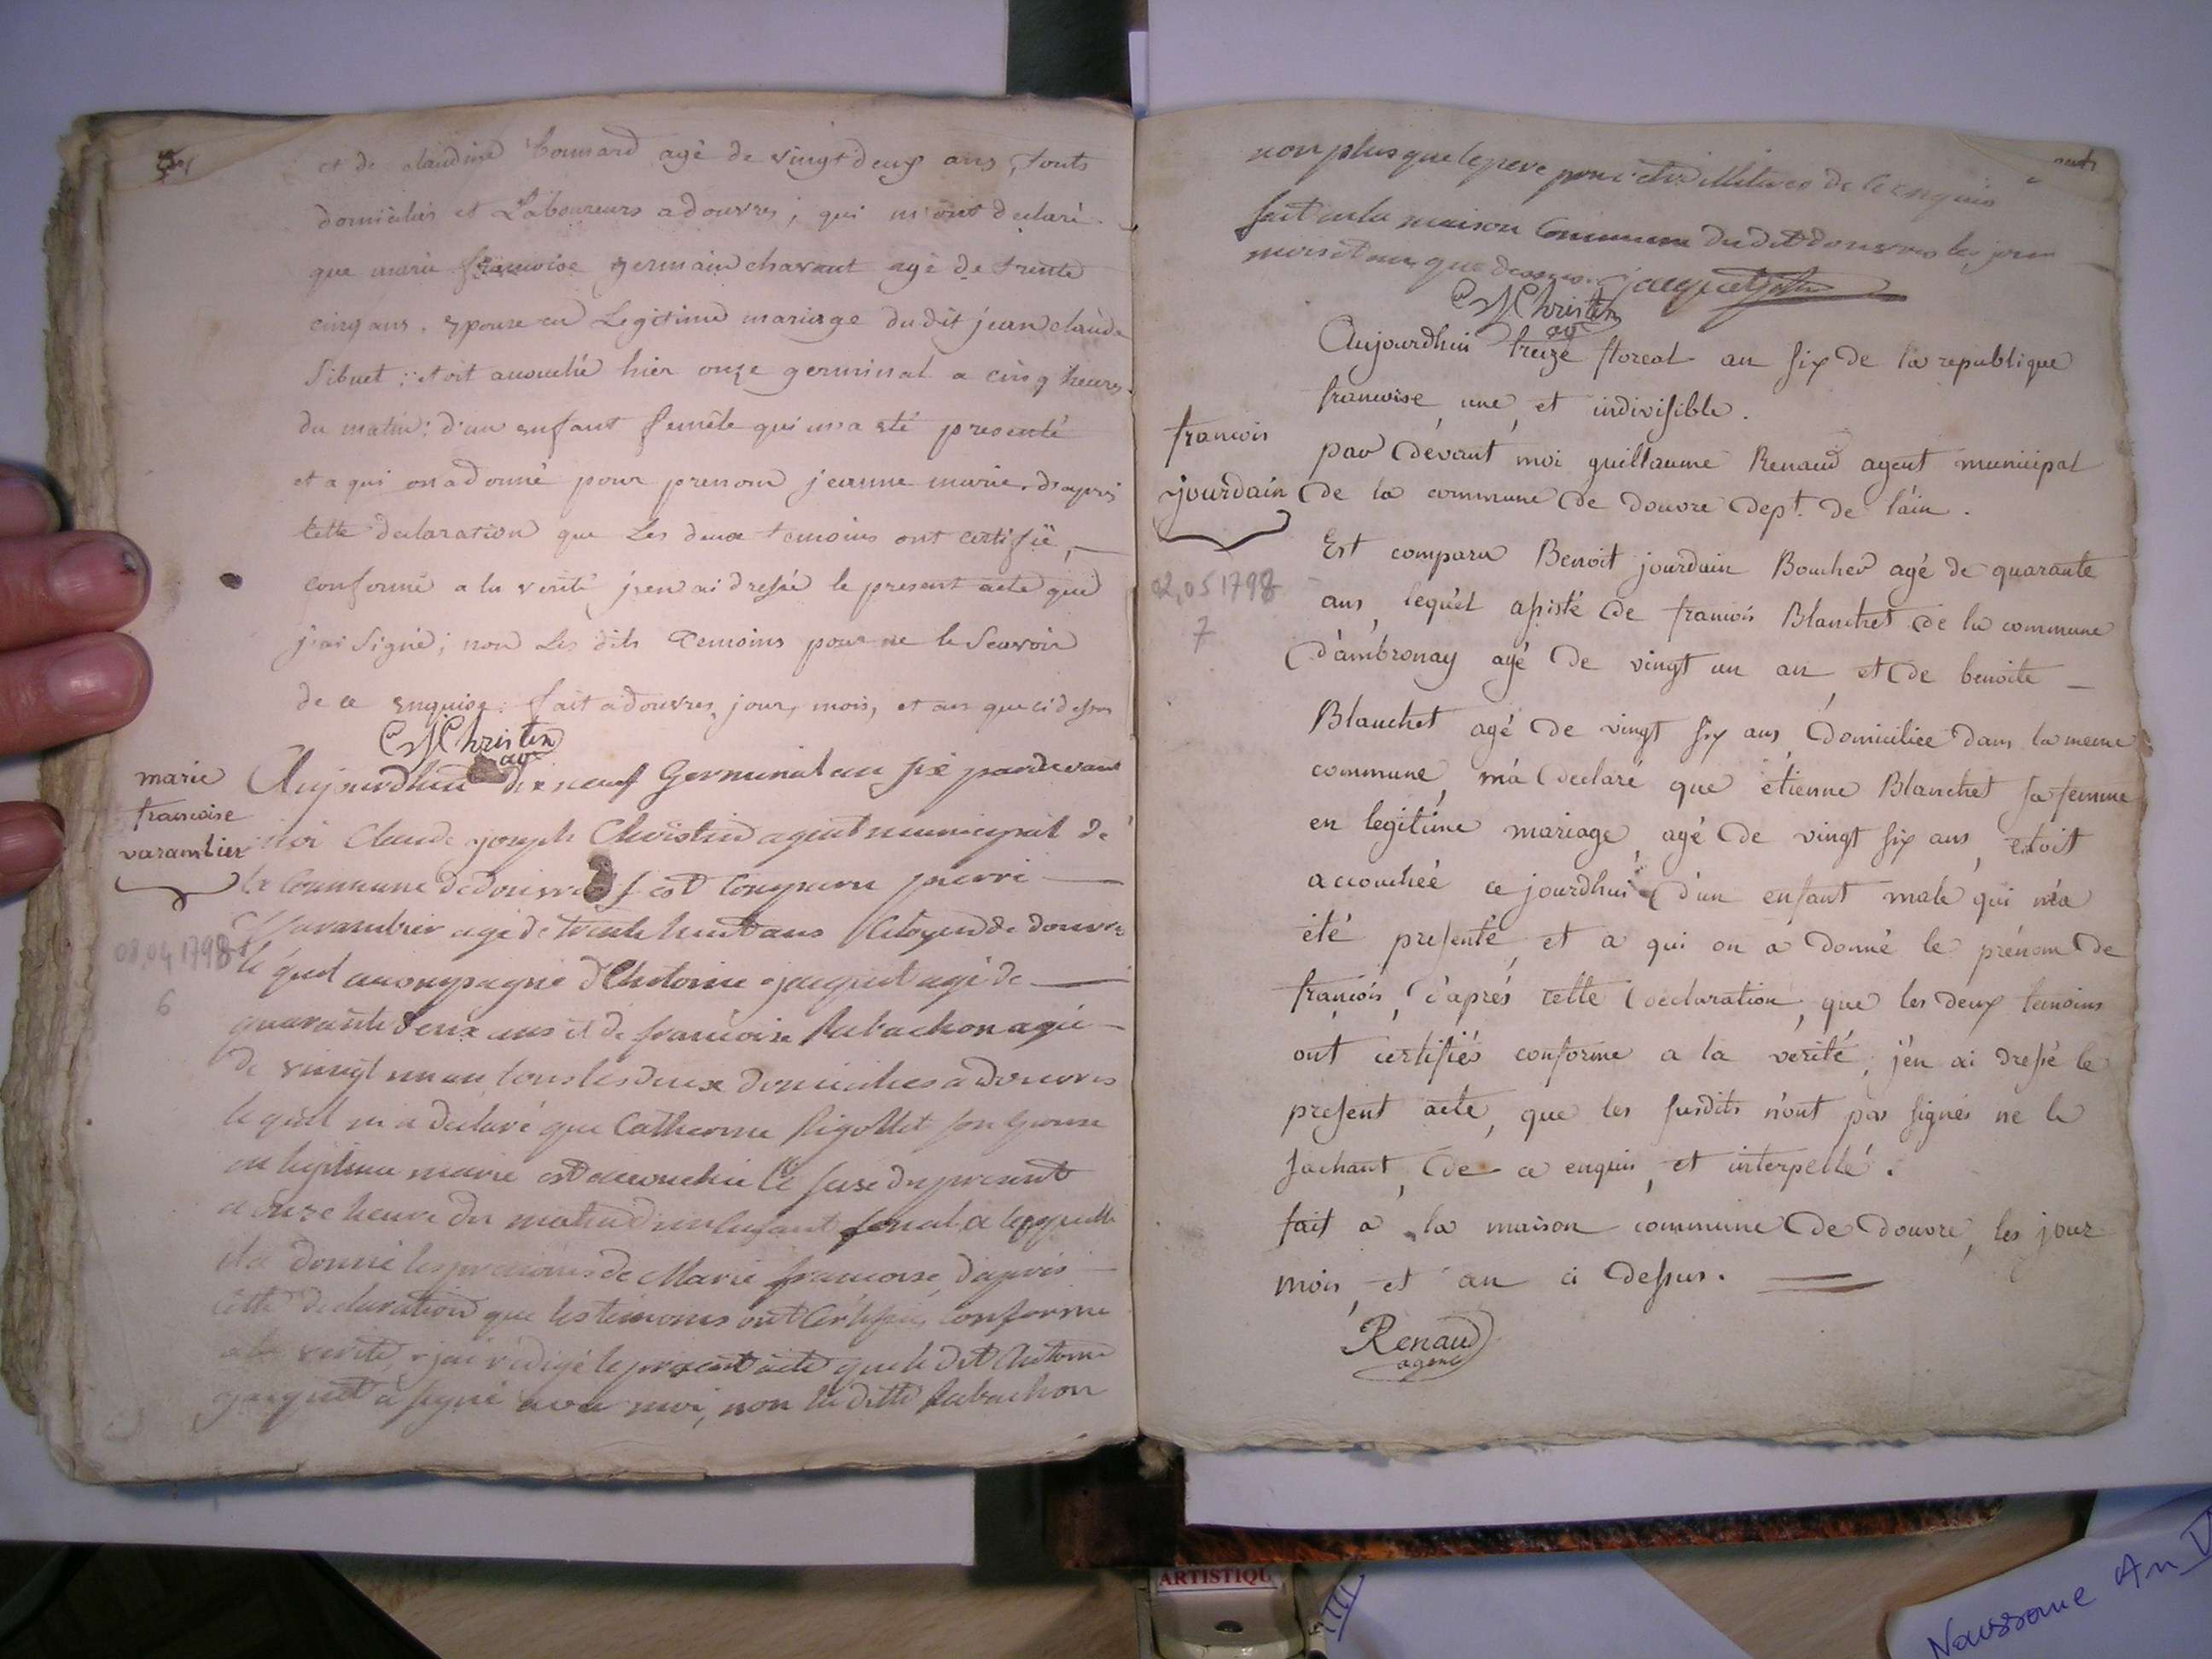 et de claudine bonnard agé de vingt deux ans, touts
domiciliés et Laboureurs a douvres; qui m'ont declaré
que marie francoise germain chavant agé de trente
cinq ans, epouse en Legitime mariage dudit jean claude
Sibuet; etoit accouché hier onze germinal a cinq heures
du matin: d'un enfant femele qui m'a eté presenté
et a qui on a donné pour prenom jeanne marie. d'apres
cette declaration que Les deux temoins ont certifié,
conforme a la verité j'en ai dressé le present acte que
j'ai signé; non Les dits temoins pour ne le scavoir
de ce enquise. fait a douvres, jour, mois, et an que ci dessus
CJ Christin
ag
marie
francoise
varambier
08.04.1798
6
Aujourdhui dix neuf Germinal an six pardevant
moi Claude joseph Christin agent municipal de
la Commune de douvres est comparu pierre
Varambier agé de trente huit ans Citoyen de douvre
le quel accompagné d'Antoine jacquet agé de
quarante deux ans et de francoise Rabachon agée
de vingt un an tous les deux domicilies a douvres
le quel m'a declaré que Catherine Rigollet son epouse
en legitime marié est accouchée le seise du present
a onze heure du matin d'un enfant femal a lesquelle
il a donné les prenoms de Marie francoise, d'apres
cette declaration que les temoins ont certifié, conforme
a la verité, j'ai redigé le present acte que le dit Antoine
jacquet a signé avec moi, non la ditte Rabachon
non plus que le pere pour etre illiteres de ce enquis
fait en la maison Commune dudit douvres les jour
mois et an que dessus. jacquet
CJ Christin
ag
francois
jourdain
02.05 1798
7
Aujourdhui treize floreal an six de la republique
francoise une et indivisible.
par devant moi guillaume Renaud agent municipal
de la commune de douvre dept. de l'ain.
Est comparu Benoit jourdain Boucher agé de quarante
ans, lequel assisté de francois Blanchet de la commune
d'ambronay agé de vingt un an, et de benoite
Blanchet agé de vingt six ans, domiciliee dans la meme
commune, m'a declaré que étienne Blanchet sa femme
en legitime mariage, agé de vingt six ans, etoit
accouchée ce jourdhui d'un enfant male qui m'a
été presenté, et a qui on a donné le prénom de
francois, d'aprés cette declaration, que les deux temoins
ont certifiés conforme a la verité, j'en ai dressé le
present acte, que les susdits n'ont pas signés ne le
sachant, de ce enquis, et interpellé.
fait a la maison commune de douvre, les jour
mois, et an ci dessus.
Renaud
agent
ARTISTIQU
III
Naissance An V